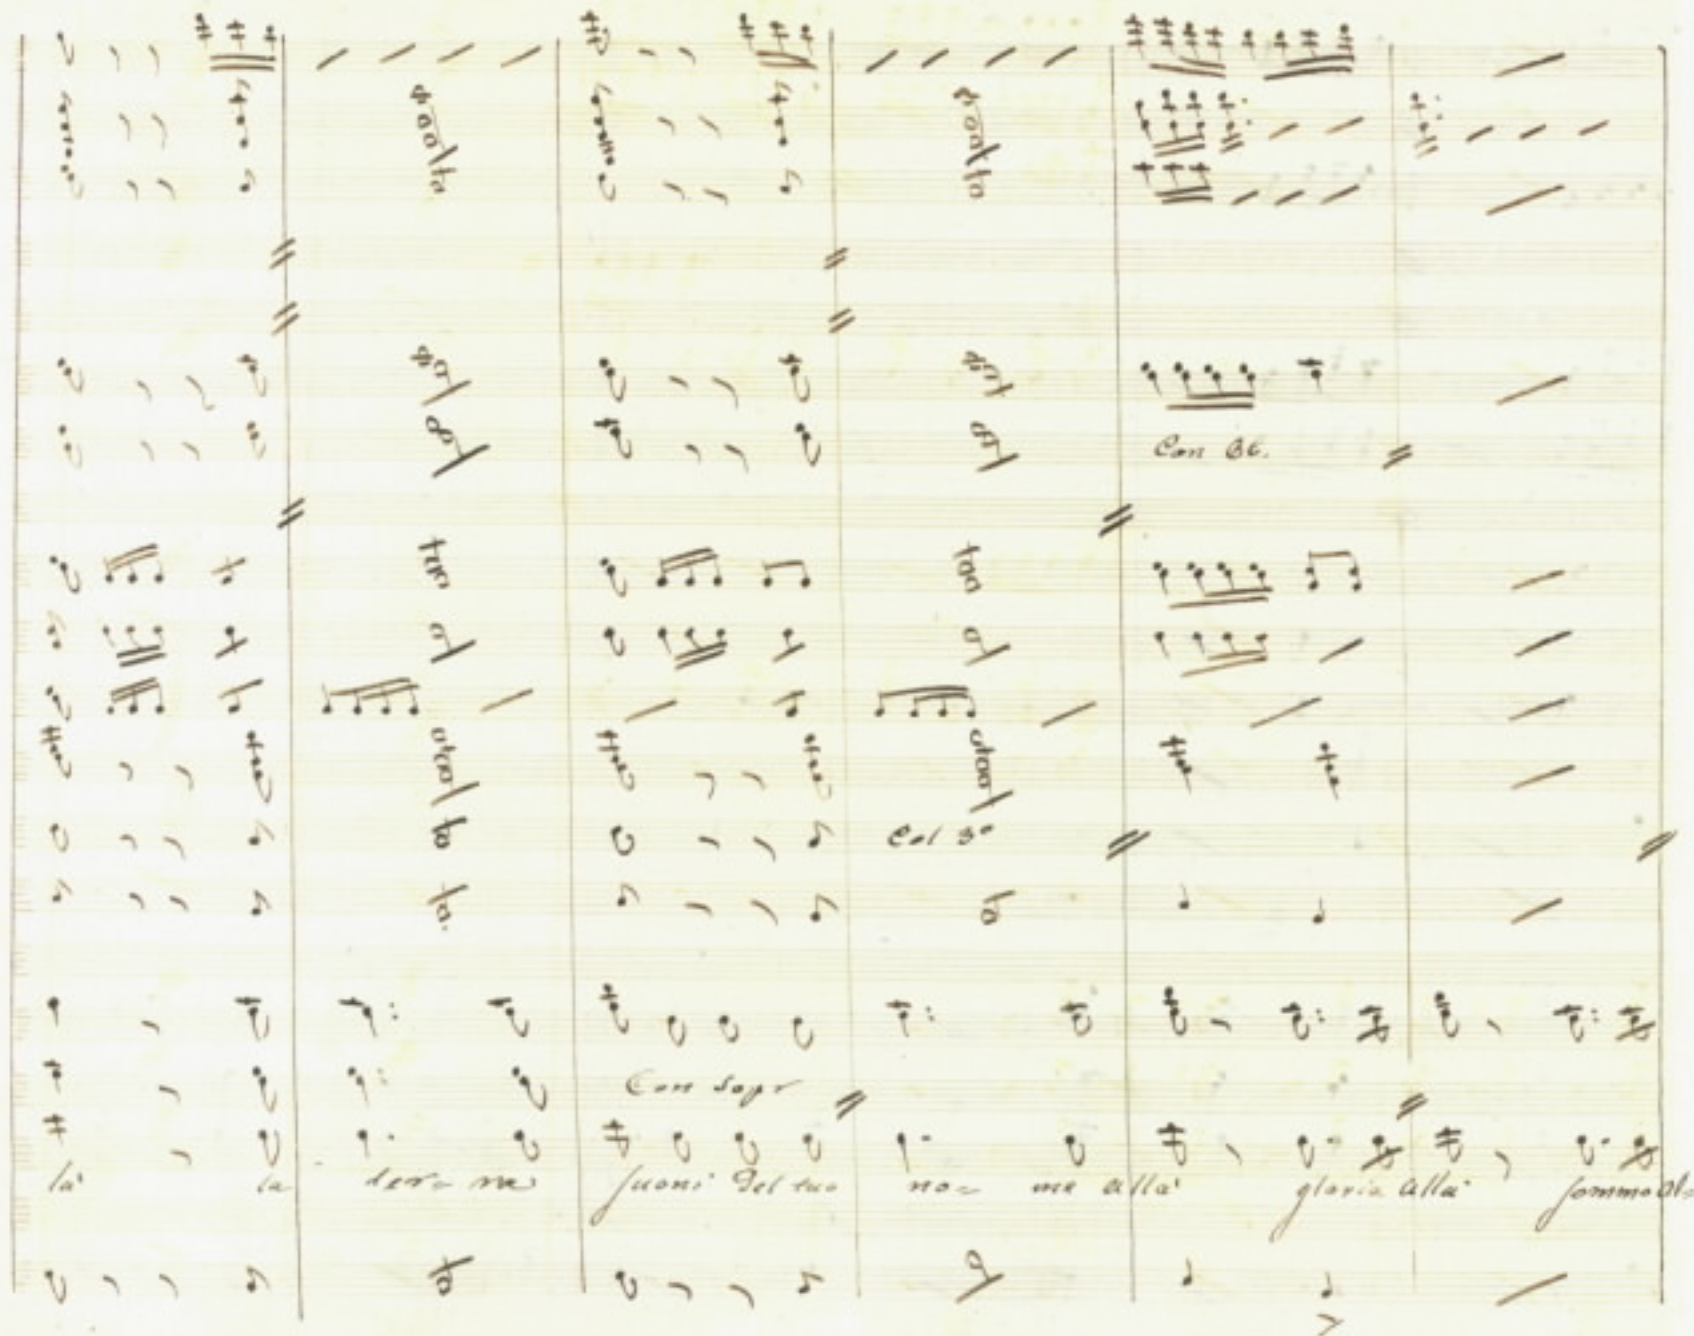 Con
Col 3º
Con Sopr
là la ter= ra suoni del tuo no= me alla' gloria alla' sommo Al=